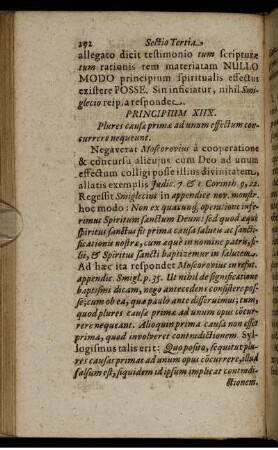 292 Sectio Tertia.
allegato dicit testimonio tum scripturæ
tum rationis rem materiatam NULLO
MODO principium spiritualis effectus
existere POSSE. Sin inficiatur, nihil Smi-
glecio reip. a respondet.
PRINCIPIUM XIIX.
Plures causæ primæ ad unum effectum con-
currere nequeunt.
Negaverat Moscorovius à cooperatione
& concursu alicujus cum Deo ad unum
effectum colligi posse illius divinitatem,
allatis exemplis Judic. 7 & 1. Corinth. 9, 22.
Regessit Smiglecius in appendice nov. monstr.
hoc modo: Non ex quacunq; operatione infe-
rimus Spiritum sanctum Deum: sed quod æquè
spiritus sanctus sit prima causa salutis ac sancti-
ficationis nostræ, cum æquè in nomine patris, fi-
lii, & Spiritus sancti baptizemur in salutem.
Ad hæc ita respondet Moscorovius in refut.
appendic. Smigl. p. 35. Ut nihil de significatione
baptismi dicam, nego antecedens consistere pos-
se; cum ob ea, quæ paulo ante disseruimus; tum,
quod plures causæ primæ ad unum opus cōcur-
rere nequeant. Alioquin prima causa non esset
prima, quod involveret contradictionem. Syl-
logismus talis erit: Quo posito, sequitur plu-
res causas primas ad unum opus cōcurrere, illud
falsum est, siquidem id ipsum implicat contradi-
ctionem.